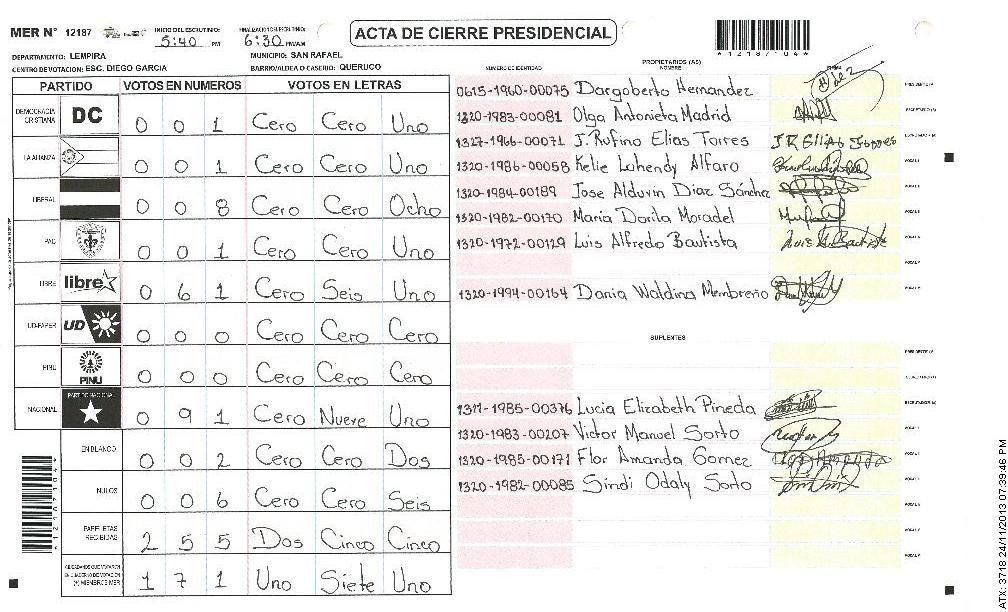 MER N° 12187
INICIO DEL ESCRUTINIO: 5:40 PM
FINALIZACION DEL ESCRUTINIO: 6:30 PM/AM
ACTA DE CIERRE PRESIDENCIAL
*12187104*
DEPARTAMENTO: LEMPIRA
MUNICIPIO: SAN RAFAEL
CENTRO DE VOTACION: ESC. DIEGO GARCIA
BARRIO/ALDEA O CASERIO: QUERUCO
PARTIDO VOTOS EN NUMEROS VOTOS EN LETRAS
DEMOCRACIA CRISTIANA DC 0 0 1 Cero Cero Uno
LA ALIANZA 0 0 1 Cero Cero Uno
LIBERAL 0 0 8 Cero Cero Ocho
PAC 0 0 1 Cero Cero Uno
LIBRE libre 0 6 1 Cero Seis Uno
UD-FAPER UD 0 0 0 Cero Cero Cero
PINU PINU 0 0 0 Cero Cero Cero
NACIONAL PARTIDO NACIONAL 0 9 1 Cero Nueve Uno
EN BLANCO 0 0 2 Cero Cero Dos
NULOS 0 0 6 Cero Cero Seis
PAPELETAS RECIBIDAS 2 5 5 Dos Cinco Cinco
CIUDADANOS QUE VOTARON EN CUADERNO DE VOTACION (+) MIEMBROS MER 1 7 1 Uno Siete Uno
PROPIETARIOS (AS)
NÚMERO DE IDENTIDAD NOMBRE FIRMA
0615-1960-00075 Dargoberto Hernandez
1320-1983-00081 Olga Antonieta Madrid
1327-1966-00071 J. Rufino Elias Torres
1320-1986-00058 Kelie Lohendy Alfaro
1320-1984-00189 Jose Alduvin Diaz Sánchez
1320-1982-00170 Maria Dorila Moradel
1320-1972-00129 Luis Alfredo Bautista
1320-1994-00164 Dania Waldina Membreño
SUPLENTES
1311-1985-00376 Lucia Elizabeth Pineda
1320-1983-00207 Victor Manuel Sorto
1320-1985-00171 Flor Amanda Gomez
1320-1982-00085 Sindi Odaly Sorto
ATX: 3718 24/11/2013 07:39:46 PM